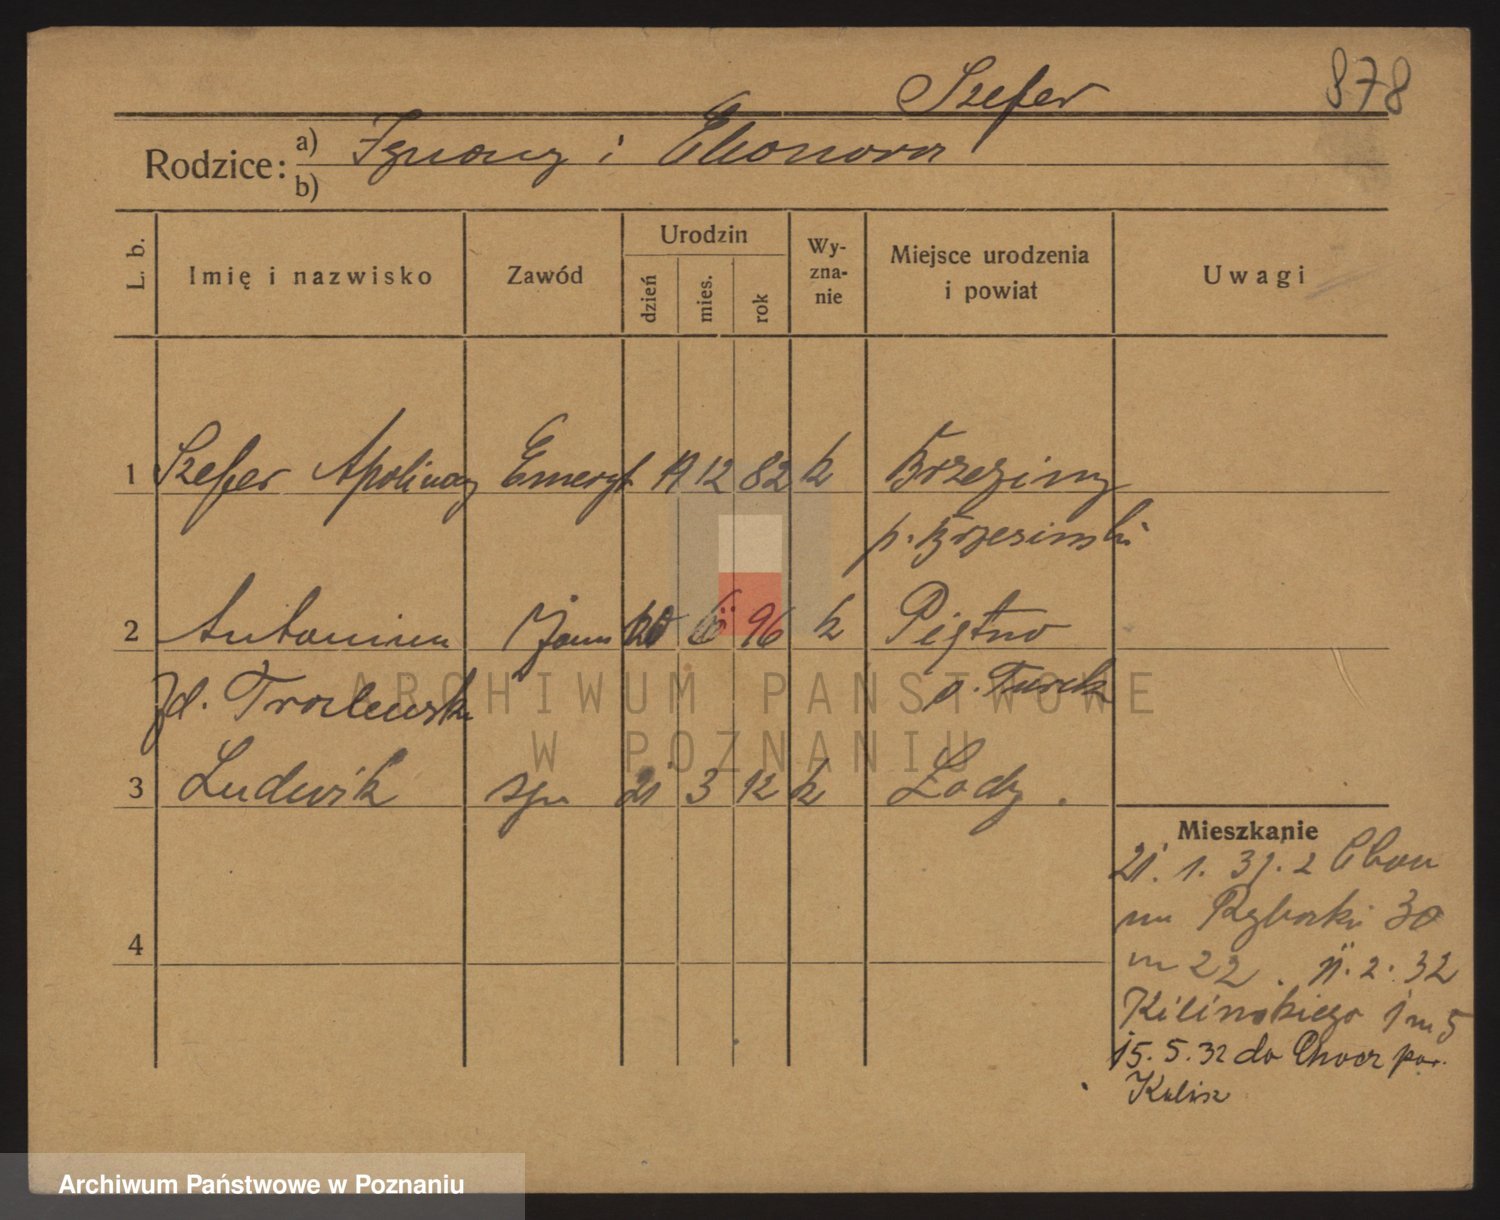 Szefer 878
Rodzice: a) Ignacy i Eleonora
b)
L. b. Imię i nazwisko Zawód Urodzin dzień mies. rok Wy-zna-nie Miejsce urodzenia i powiat Uwagi
1 Szefer Apolinary Emeryt 12 82 k Brzeziny
p. Brzezinski
2 Antonina 96 k Piętno
zd. p. Turek
3 Ludwik syn 21 3 12 k Łodz.
Mieszkanie
21. 1. 32. z
30
m 22. 11. 2. 32
Kilinskiego 1 m 5
15. 5. 32 do Chocz pow.
Kalisz
4
ARCHIWUM PAŃSTWOWE
W POZNANIU
Archiwum Państwowe w Poznaniu